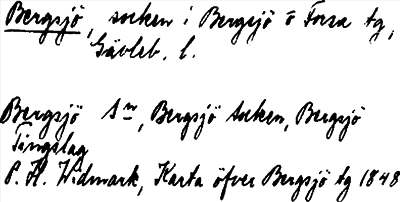 Bergsjö, socken i Bergsjö o Forsa tg,
Gävleb. l.
Bergsjö Sn, Bergsjö Socken, Bergsjö
Tingslag
P. H. Widmark, Karta öfver Bergsjö tg 1848